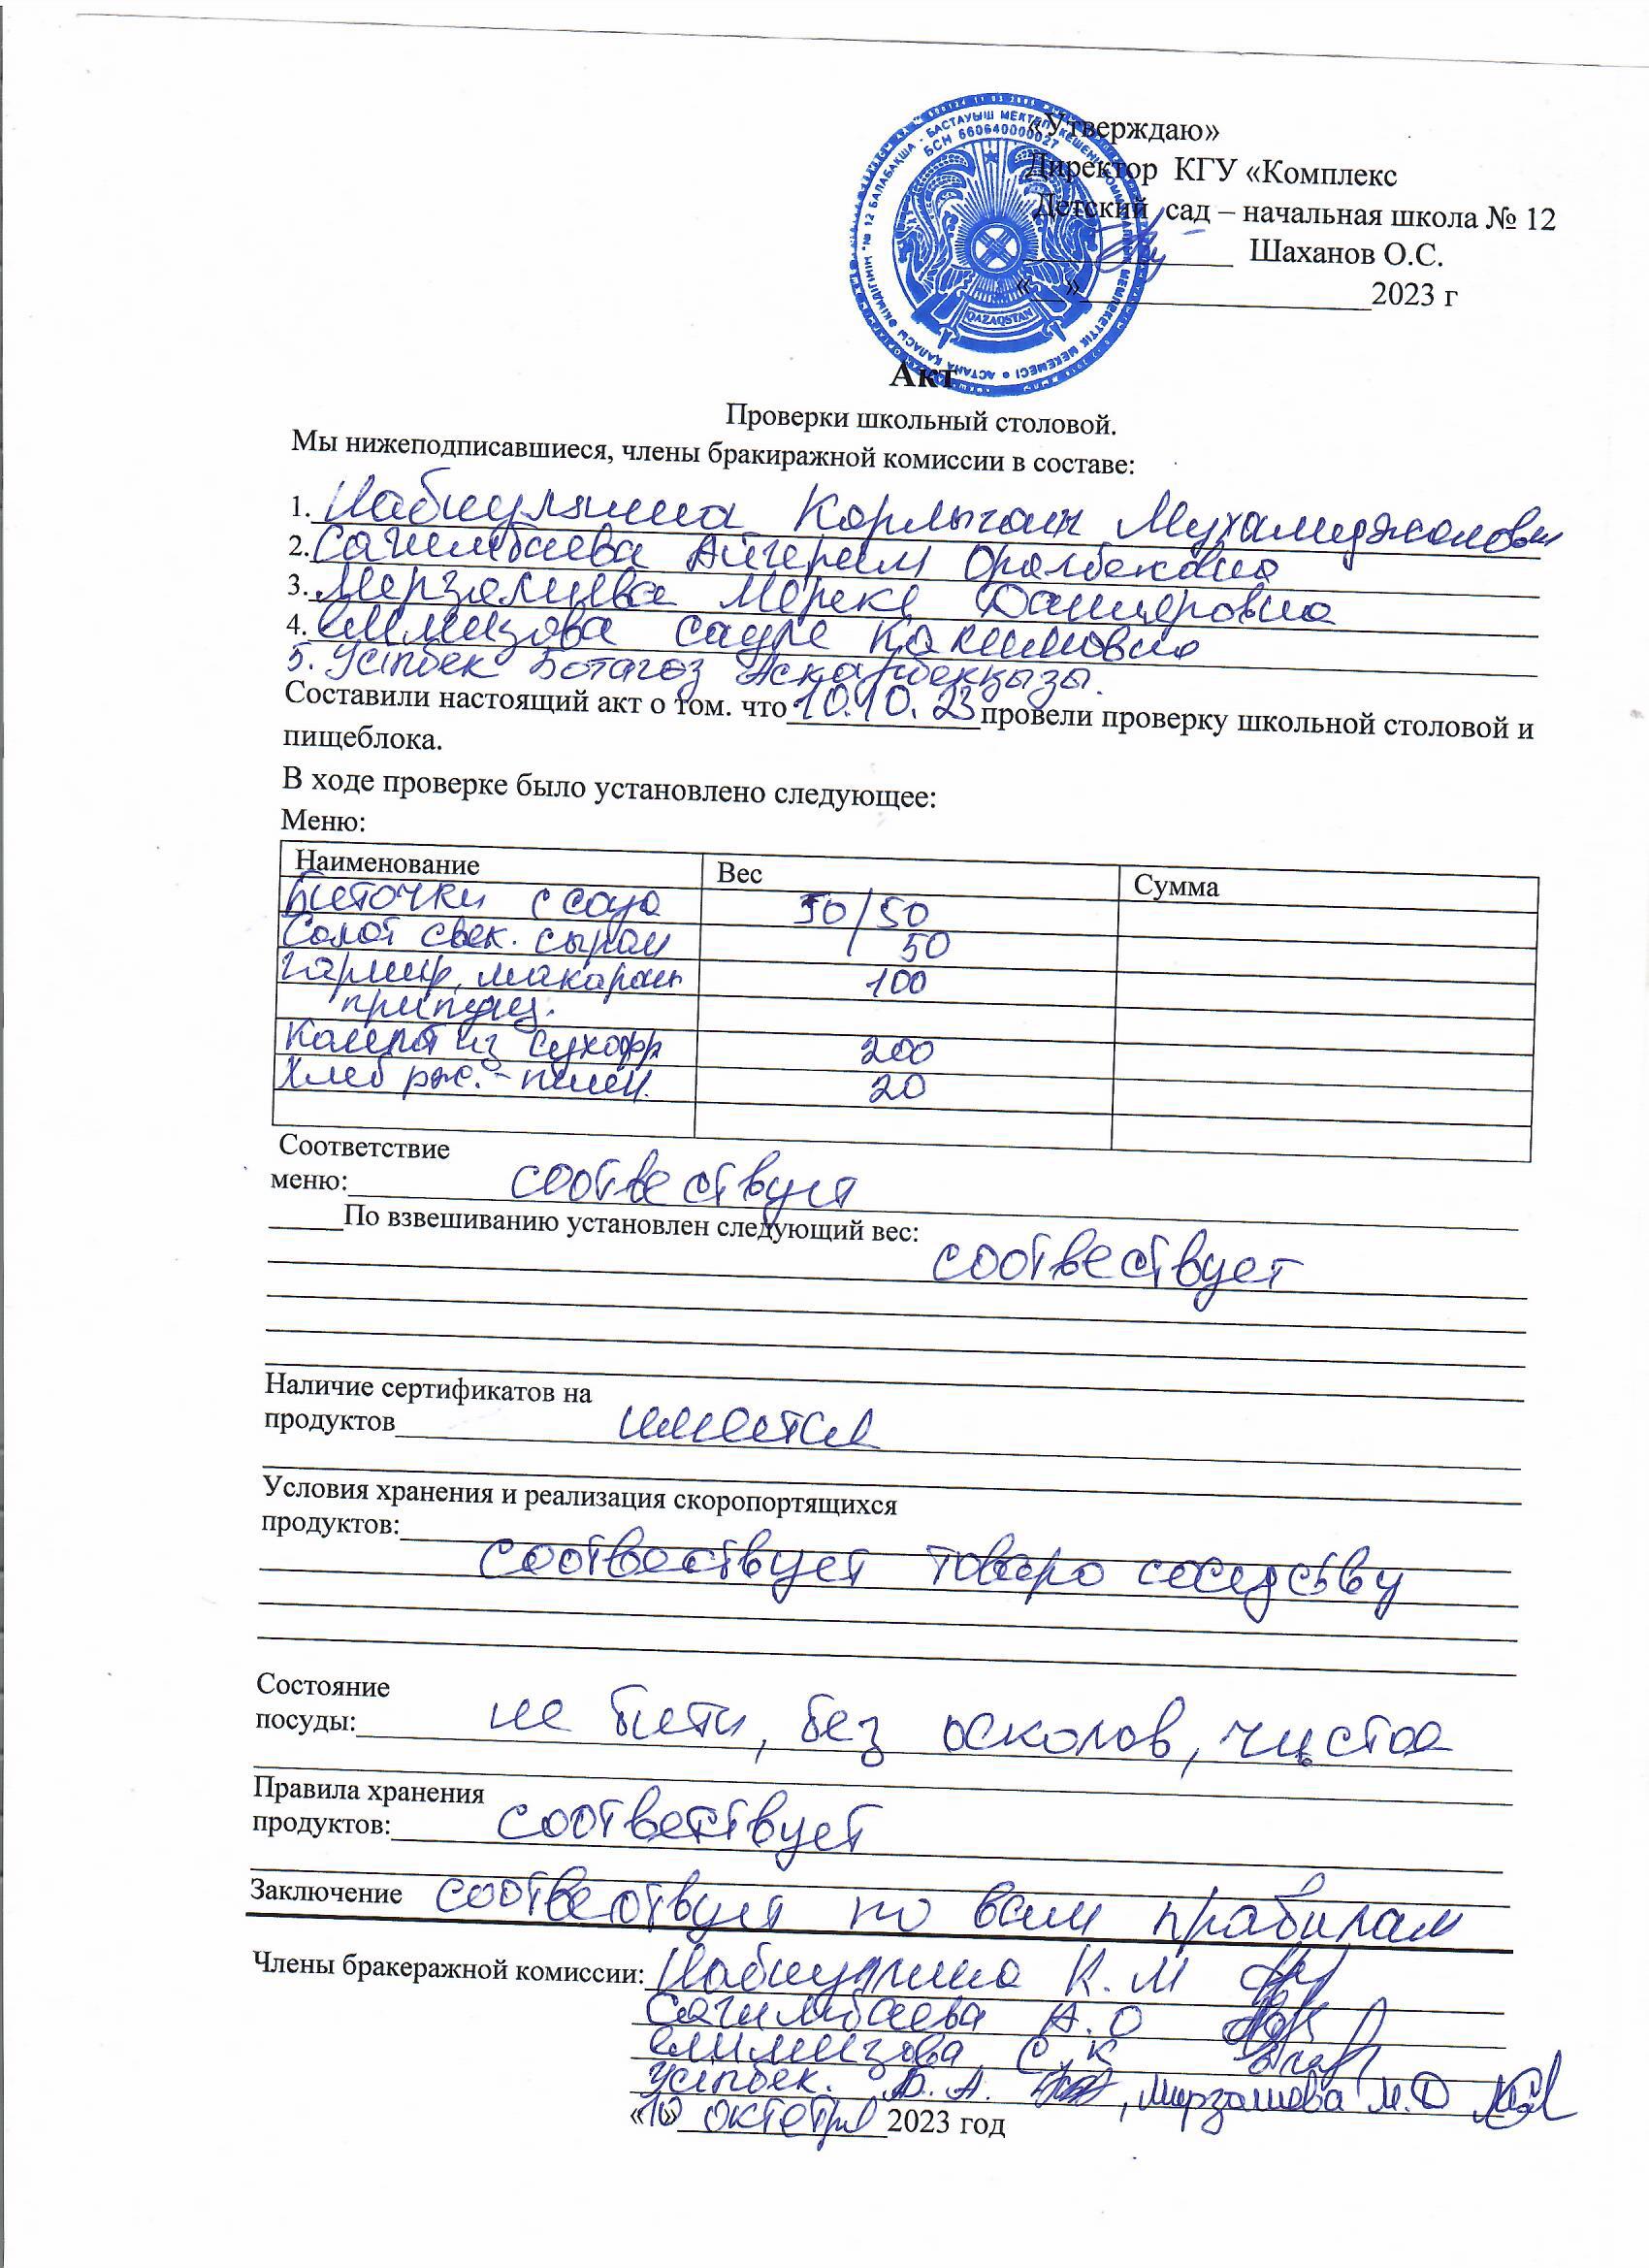 «Утверждаю»
Директор КГУ «Комплекс
Детский сад – начальная школа № 12
Шаханов О.С.
«__»____________2023 г
БСН 660640000027
QAZAQSTAN
Акт
Проверки школьный столовой.
Мы нижеподписавшиеся, члены бракиражной комиссии в составе:
1. Набиуллина Корлыгаш
2. Сагимбаева Айгерим Оралбековна
3. Мерзалиева МерекеДанияровна
4. Салимова Сауле Какимовна
5. Үсіпбек Ботагөз Асқарбекқызы.
Составили настоящий акт о том. что 10.10.23 провели проверку школьной столовой и
пищеблока.
В ходе проверке было установлено следующее:
Меню:
Наименование Вес Сумма
Биточки с соусо 50/50
Салат свек. сыром 50
Гарнир, макарон 100
припущ.
Компот из сухофр 200
Хлеб рж.-пшен. 20
Соответствие
меню: соотвествует
По взвешиванию установлен следующий вес:
соотвествует
Наличие сертификатов на
продуктов имеется
Условия хранения и реализация скоропортящихся
продуктов:
соотвествует товаро соседству
Состояние
посуды: не бити, без осколов, чистое
Правила хранения
продуктов: соответствует
Заключение соотвествует по всем правилам
Члены бракеражной комиссии: Набиуллина К.М
Сагимбаева А.О
С.К
Үсіпбек. Б.А. , Мирзалиева М.Д
«10» октября 2023 год